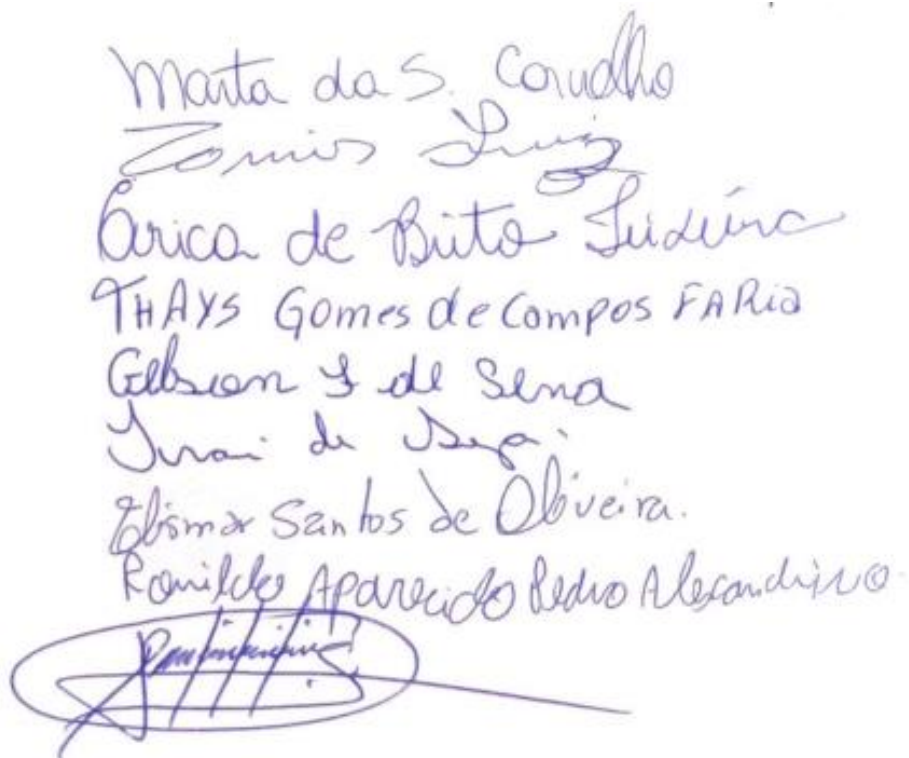 Marta da S. Carvalho
Luiz
Érica de Brito Teixeira
THAYS Gomes de Campos FARia
Gelson de Sena
de
Elismar Santos de Oliveira.
Ronildo Aparecido Pedro Alexandrino